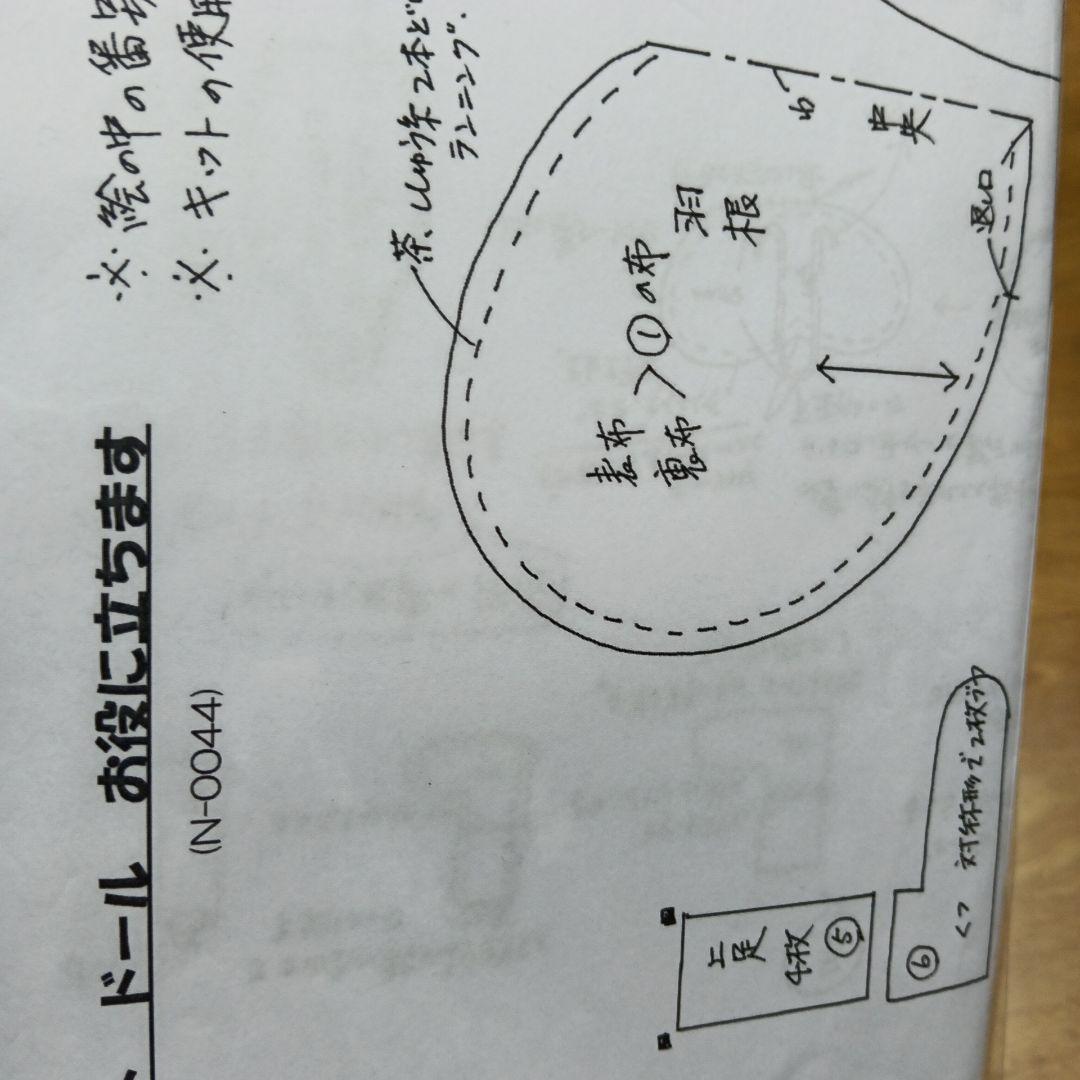 ドール お役に立ちます
(N-0044)
※ 絵の中の番号
※ キットの使用
茶、ししゅう糸2本ど
ランニング.
わ
中央
羽根
返し口
表布
裏布 > ①の布
上足
4枚
⑤
⑥
くつ 対称形で2枚ヅツ